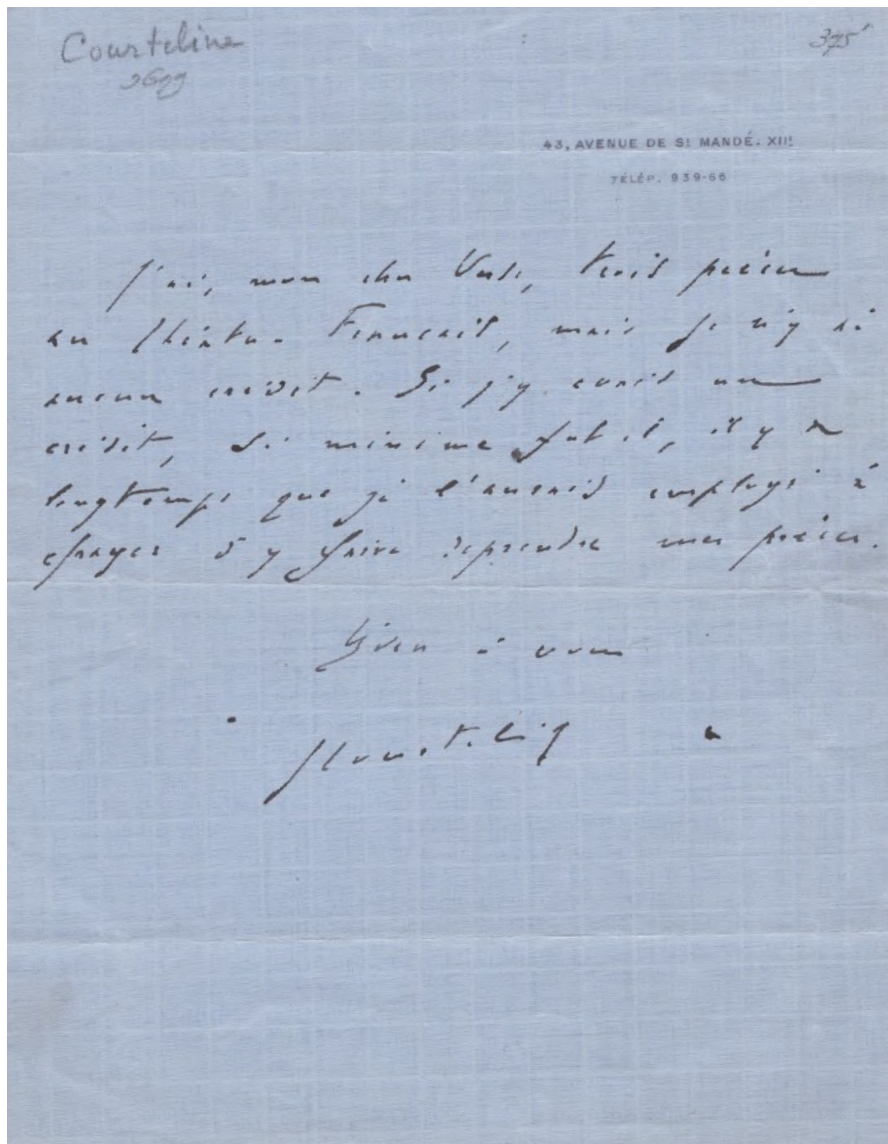 Courteline
375
43, AVENUE DE ST MANDÉ. XIIE
TÉLÉP. 939-66
J'ai, mon cher trois pièces
au Théâtre Français, mais je n'y ai
aucun crédit. Si j'y avais un
crédit, si minime fut-il, il y a
longtemps que je l'aurais employé à
essayer d'y faire reprendre mes pièces.
Bien à vous
GCourteline